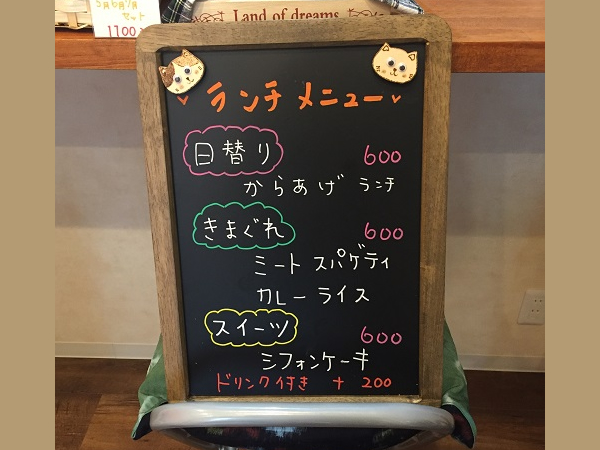 5月6月7月
セット
1100
Land of dreams
ランチメニュー
日替り 600
からあげ ランチ
きまぐれ 600
ミートスパゲティ
カレーライス
スイーツ 600
シフォンケーキ
ドリンク付き + 200